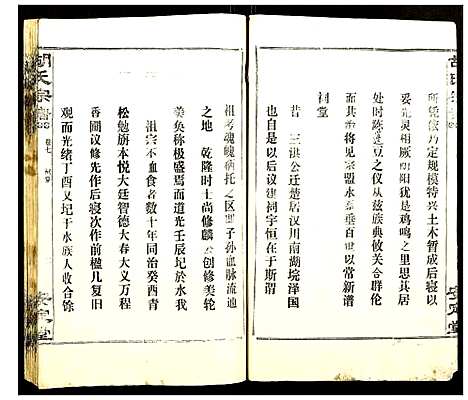 所凭依乃定规模特兴土木暂成后寝以
妥先灵相厥阴阳犹是鸡鸣之里思其居
处时陈笾豆之仪仰从兹族典攸关合群伦
而共济将见宗盟永奠垂百世以常新谱
之自此以后议建祠宇恒在于斯谓
祠堂
昔 三淇公迁楚居汉川南湖垸泽国
祖考魂魄栖托之区即子孙血脉流通
之地 乾隆时士尚修麟公创修美轮
美奂称极盛焉而道光壬辰圮於水我
祖宗不血食者数十年同治癸酉青
松勉旃本悦大廷智德大春大义万程
香圃议修先作后寝次作前楹几复旧
观而光绪丁酉又圮于水族人收合馀
胡氏宗谱
卷七
祠堂
安定堂
安定堂